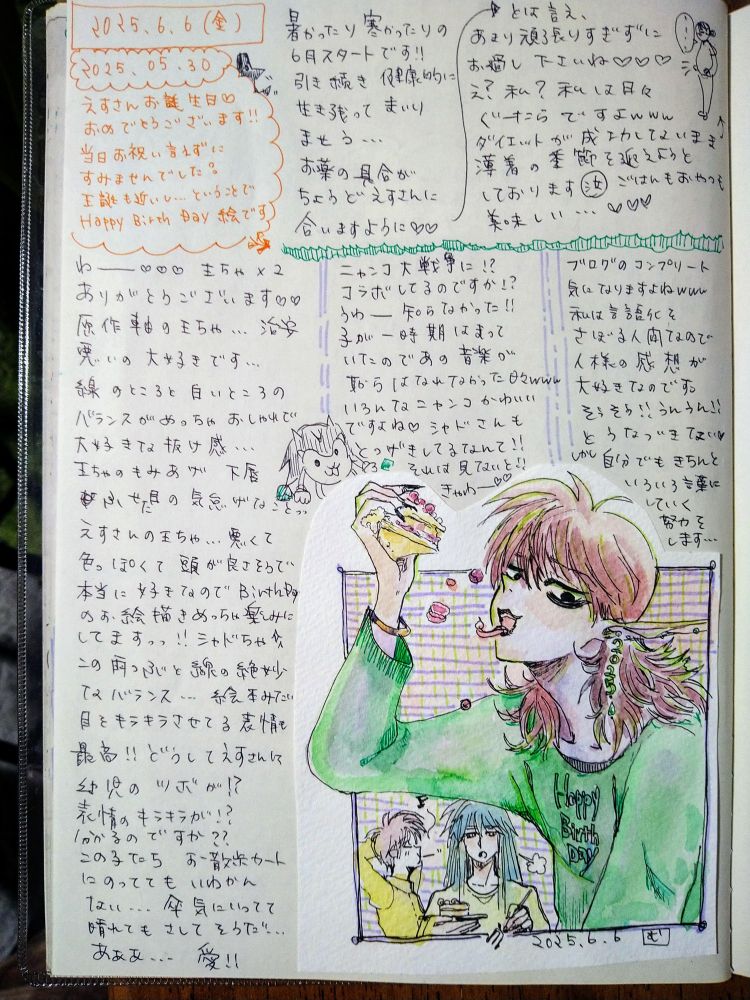 2025.6.6(金)
2025.05.30
えすさんお誕生日♡
おめでとうございます!!
当日お祝い言えずに
すみませんでした。
王誕も近いし…ということで
Happy Birth Day 絵です
暑かったり寒かったりの
6月スタートです!!
引き続き 健康的に
生き残って まいり
ませう…
お薬の具合が
ちょうどえすさんに
合いますように♡♡
とは言え、
あまり頑張りすぎずに
お過し下さいね♡♡♡
え?私? 私は日々
ぐーたらですよwww
ダイエットが成功してないまま
薄着の季節を迎えようと
しております 汝 ごはんもおやつも
美味しい…♡♡
!
わー♡♡♡ 王ちゃ×2
ありがとうございます♡♡
原作軸の王ちゃ… 治安
悪いの大好きです…
線のところと白いところの
バランスがめっちゃおしゃれで
大好きな抜け感…
王ちゃのもみあげ 下唇
ふせた目の気怠げなことっっ
えすさんの王ちゃ…悪くて
色っぽくて頭が良さそうで
本当に好きなのでBirthDay
のお絵描きめっちゃ楽しみに
してますっっ!! シャドちゃん
この雨つぶと線の絶妙
なバランス… 絵本みたい
目をキラキラさせてる表情も
最高!! どうしてえすさんは
幼児のツボが!?
表情のキラキラが!?
分かるのですか??
この子たち お散歩カート
にのってても いわかん
ない… 傘気にいってて
晴れてもさしてそうだ…
あぁぁ… 愛!!
ニャンコ大戦争に!?
コラボしてるのですか!?
うわー 知らなかった!!
子が一時期はまって
いたのであの音楽が
耳からはなれなかった日々www
いろんなニャンコかわいい
ですよね♡ シャドさんも
とつげきしてるなんて!!
それは見ないと!!
きゃわー♡♡
ブログのコンプリート
気になりますよねwww
私は言語化を
さぼる人間なので
人様の感想が
大好きなのです。
そうそう!! うんうん!!
とうなづきてない♡
しかし自分でもきちんと
いろいろ言葉に
していく
努力を
します…
Happy
Birth
DAY
2025.6.6